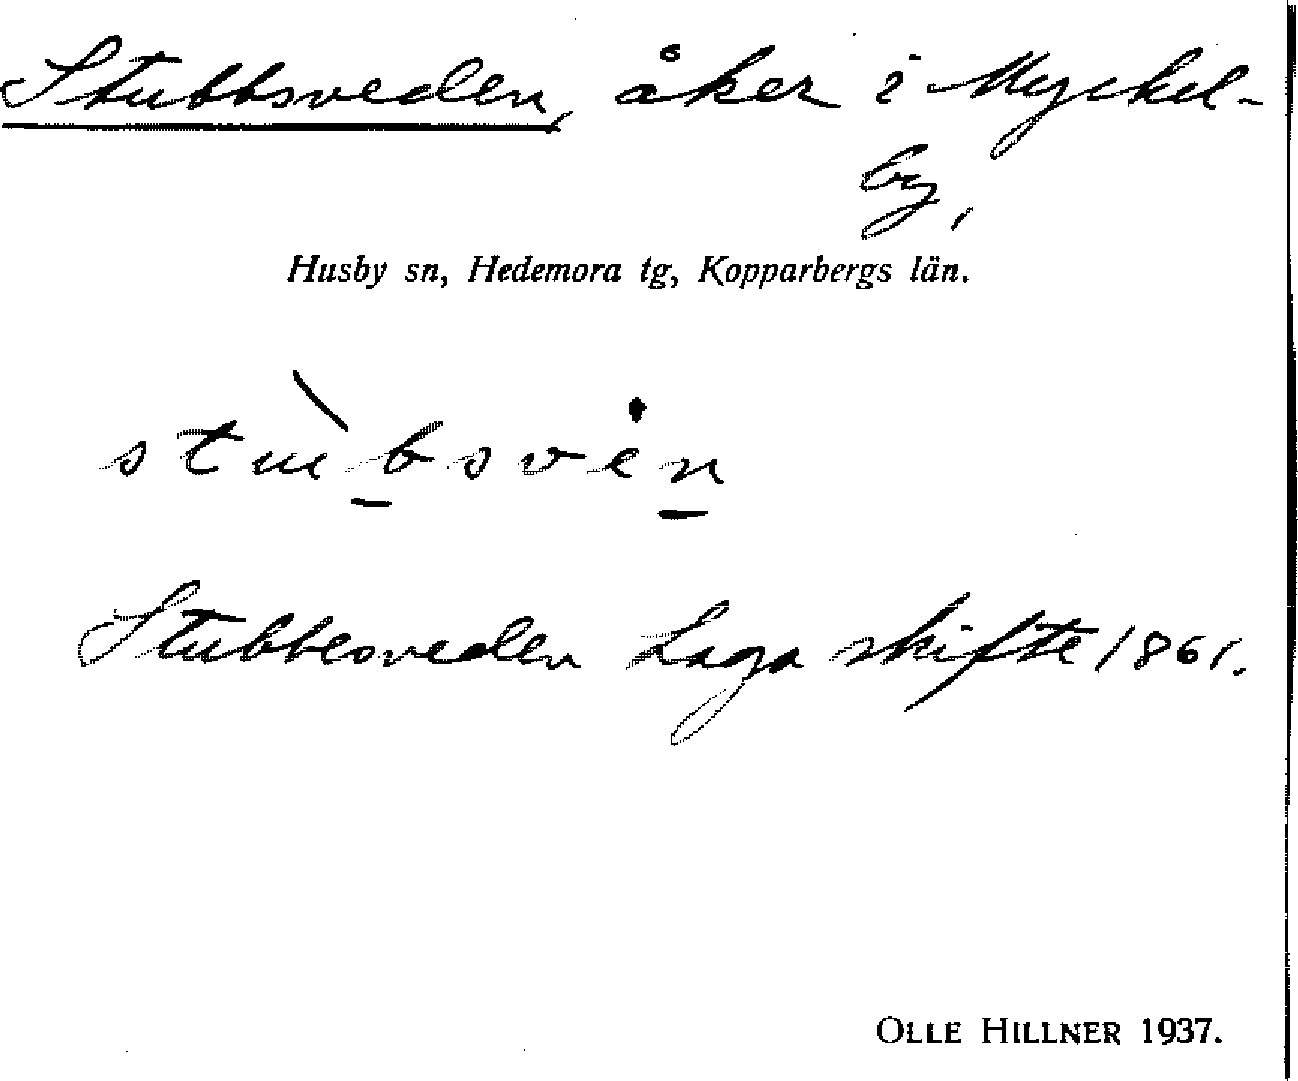 Stubbsveden, åker i Myckel-
by,
Husby sn, Hedemora tg, Kopparbergs län.
stùbsvén
Stubbesveden Laga skifte 1861.
OLLE HILLNER 1937.